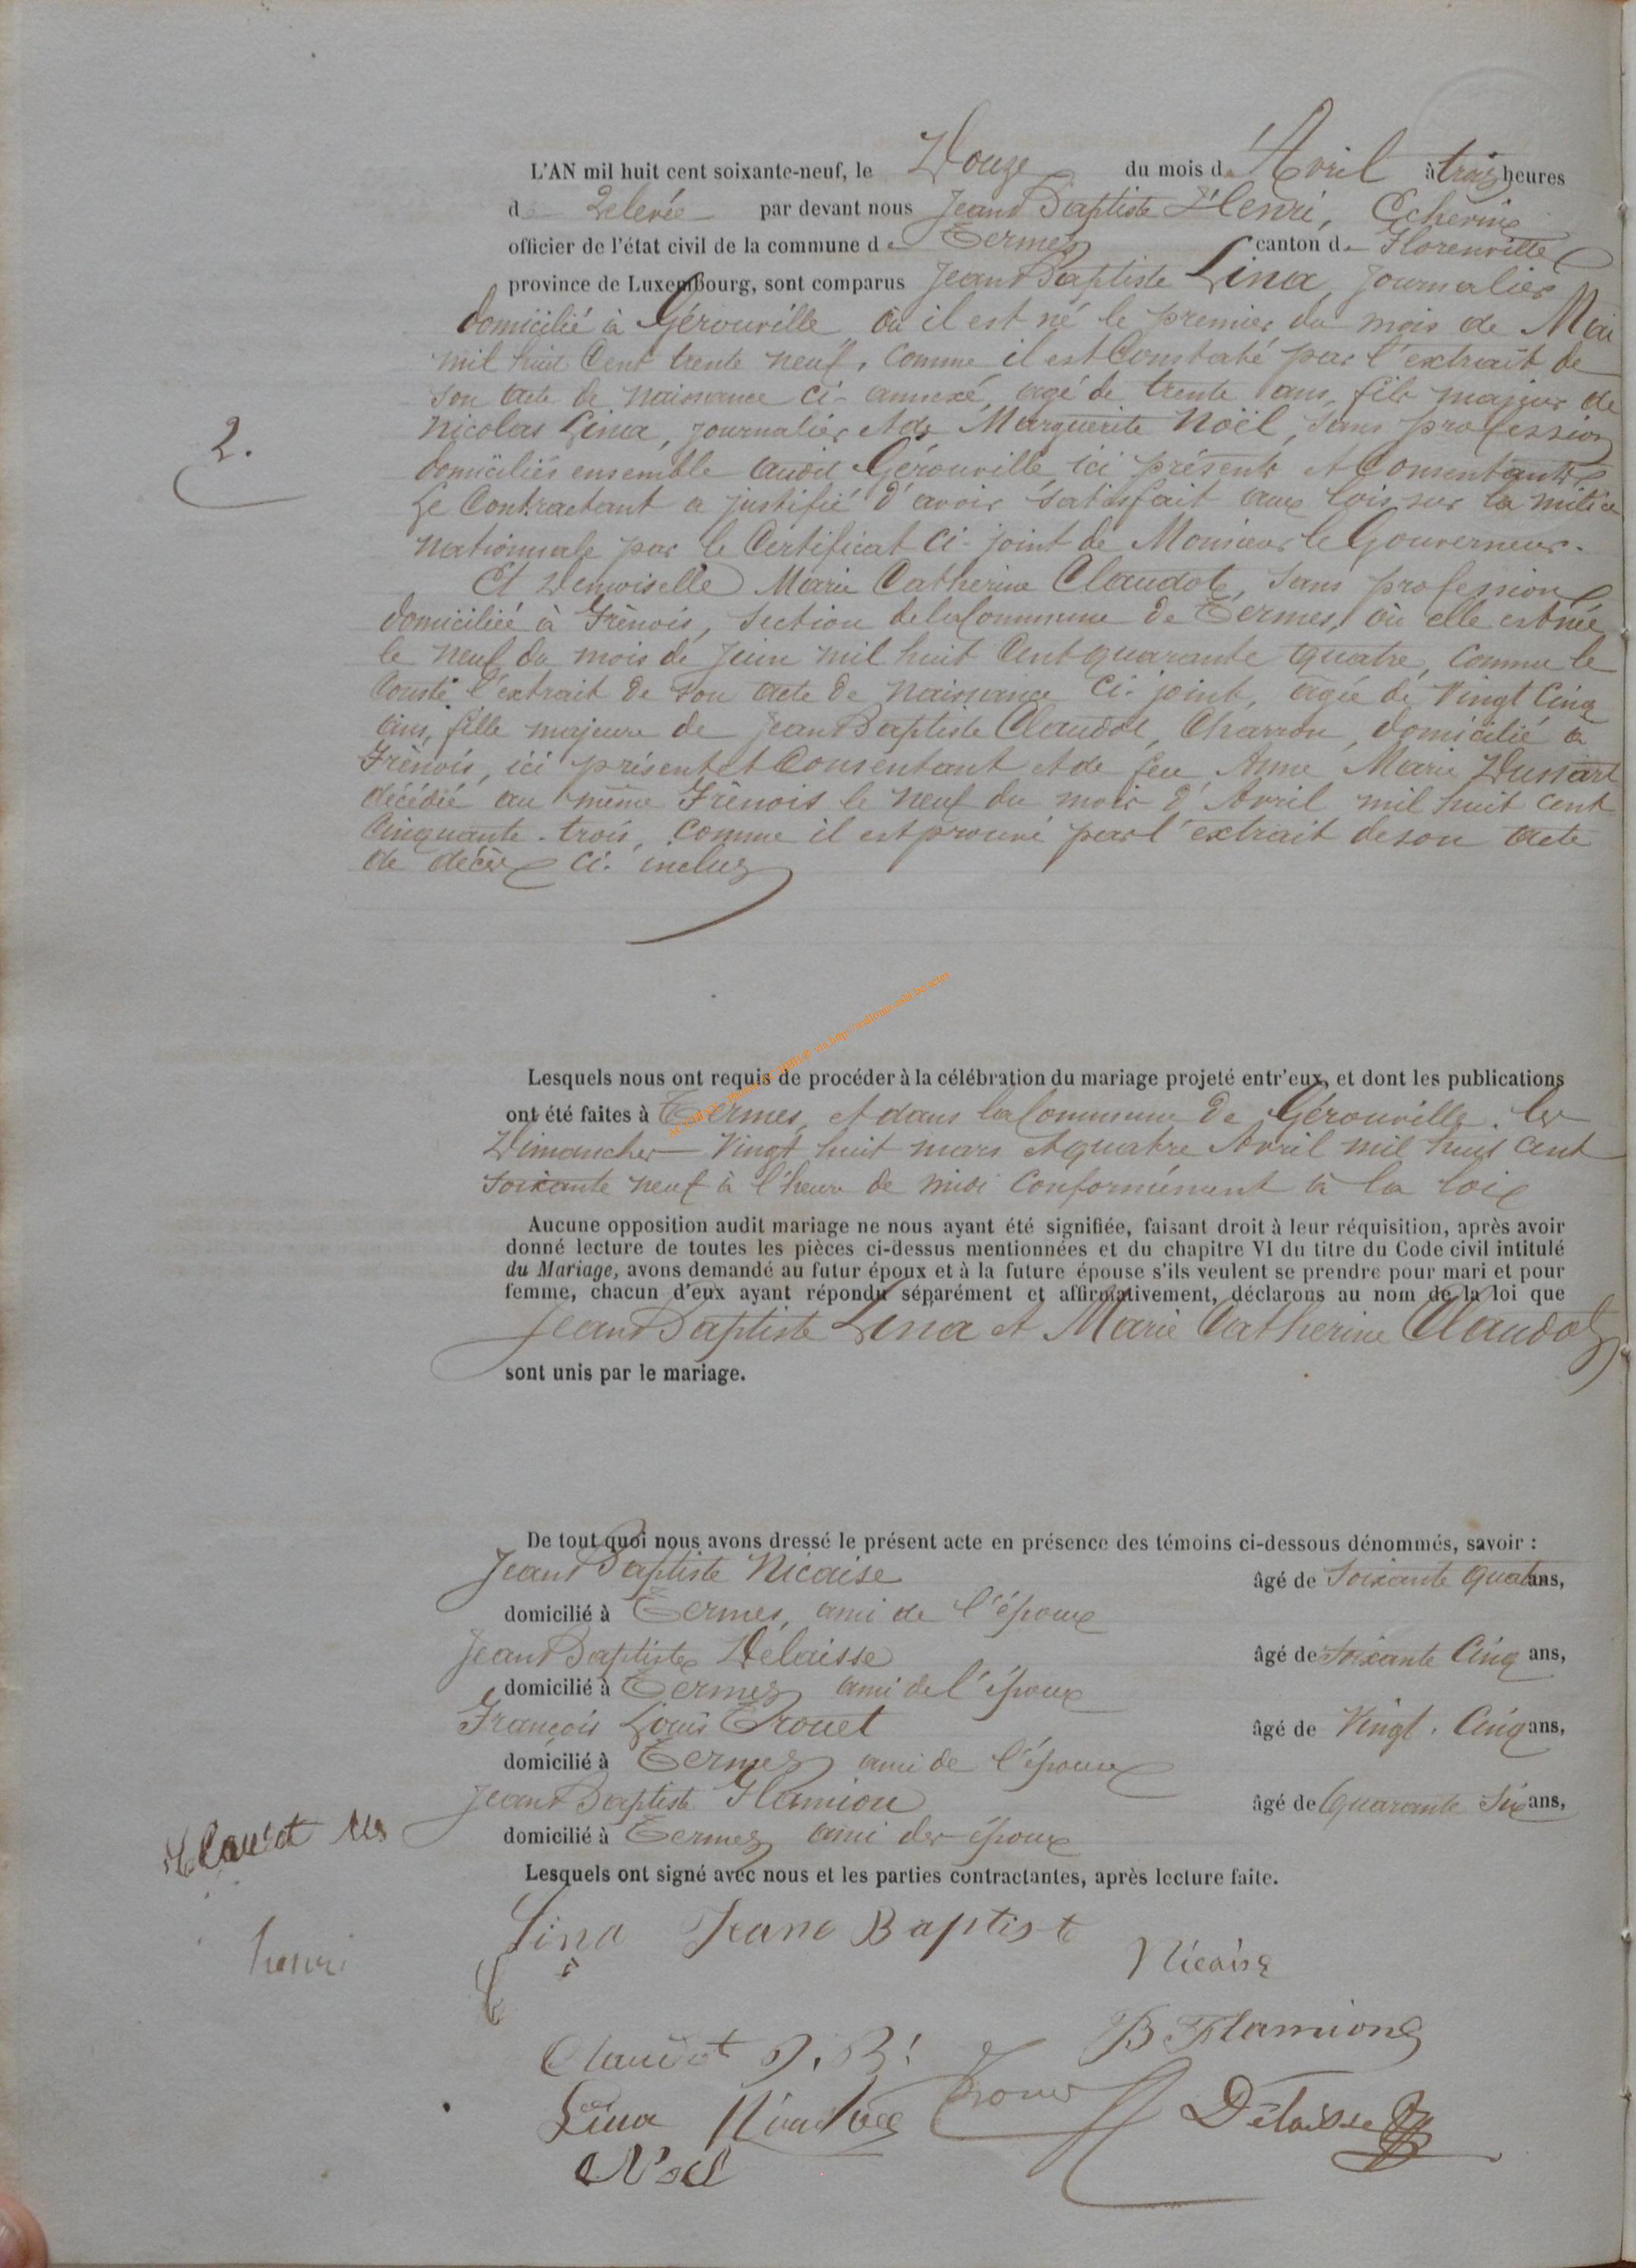 L'AN mil huit cent soixante-neuf, le Douze du mois d'Avril à trois heures
de Relevée par devant nous Jean Baptiste Henri, Echevin
officier de l'état civil de la commune de Termes canton de Florenville
province de Luxembourg, sont comparus Jean Baptiste Lina, journalier
domicilié à Gérouville où il est né le premier du mois de Mai
mil huit Cent trente neuf, comme il est Constaté par l'extrait de
son acte de naissance ci-annexé, agé de trente ans, fils majeur de
2.
Nicolas Lina, journalier et de Marguerite Noël, sans profession
domiciliés ensemble audit Gérouville ici présents et Consentants
Le Contractant a justifié d'avoir satisfait aux lois sur la milice
nationale par le Certificat ci-joint de Monsieur le Gouverneur.
Et Demoiselle Marie Catherine Claudot, sans profession
domiciliée à Frênois, section de la Commune de Termes, où elle est née
le neuf du mois de Juin mil huit Cent quarante quatre, comme le
Conste l'extrait de son acte de naissance ci-joint, agée de Vingt Cinq
ans, fille majeure de Jean Baptiste Claudot, Charron, domicilié à
Frênois, ici présent et Consentant et de feu Anne Marie Dussart
décédée au même Frênois le neuf du mois d'Avril mil huit cent
Cinquante-trois, comme il est prouvé par l'extrait de son acte
de décès ci-inclus
Lesquels nous ont requis de procéder à la célébration du mariage projeté entr'eux, et dont les publications
ont été faites à Termes et dans la Commune de Gérouville. les
Dimanches Vingt huit mars et quatre Avril mil huit cent
soixante neuf à l'heure de midi Conformément à la loi
Aucune opposition audit mariage ne nous ayant été signifiée, faisant droit à leur réquisition, après avoir
donné lecture de toutes les pièces ci-dessus mentionnées et du chapitre VI du titre du Code civil intitulé
du Mariage, avons demandé au futur époux et à la future épouse s'ils veulent se prendre pour mari et pour
femme, chacun d'eux ayant répondu séparément et affirmativement, déclarons au nom de la loi que
Jean Baptiste Lina et Marie Catherine Claudot
sont unis par le mariage.
De tout quoi nous avons dressé le présent acte en présence des témoins ci-dessous dénommés, savoir :
Jean Baptiste Nicaise âgé de Soixante quatre ans,
domicilié à Termes, ami de l'époux
Jean Baptiste Délaisse âgé de Soixante Cinq ans,
domicilié à Termes ami de l'époux
François Louis Trouet âgé de Vingt-Cinq ans,
domicilié à Termes ami de l'époux
Jean Baptiste Flamion âgé de Quarante Six ans,
domicilié à Termes ami des époux
Claudot
Lesquels ont signé avec nous et les parties contractantes, après lecture faite.
Lina Jean Baptist
henri
Nicaise
B Flamion
Claudot J.B.
Trouet
Délaisse
Lina
Noel